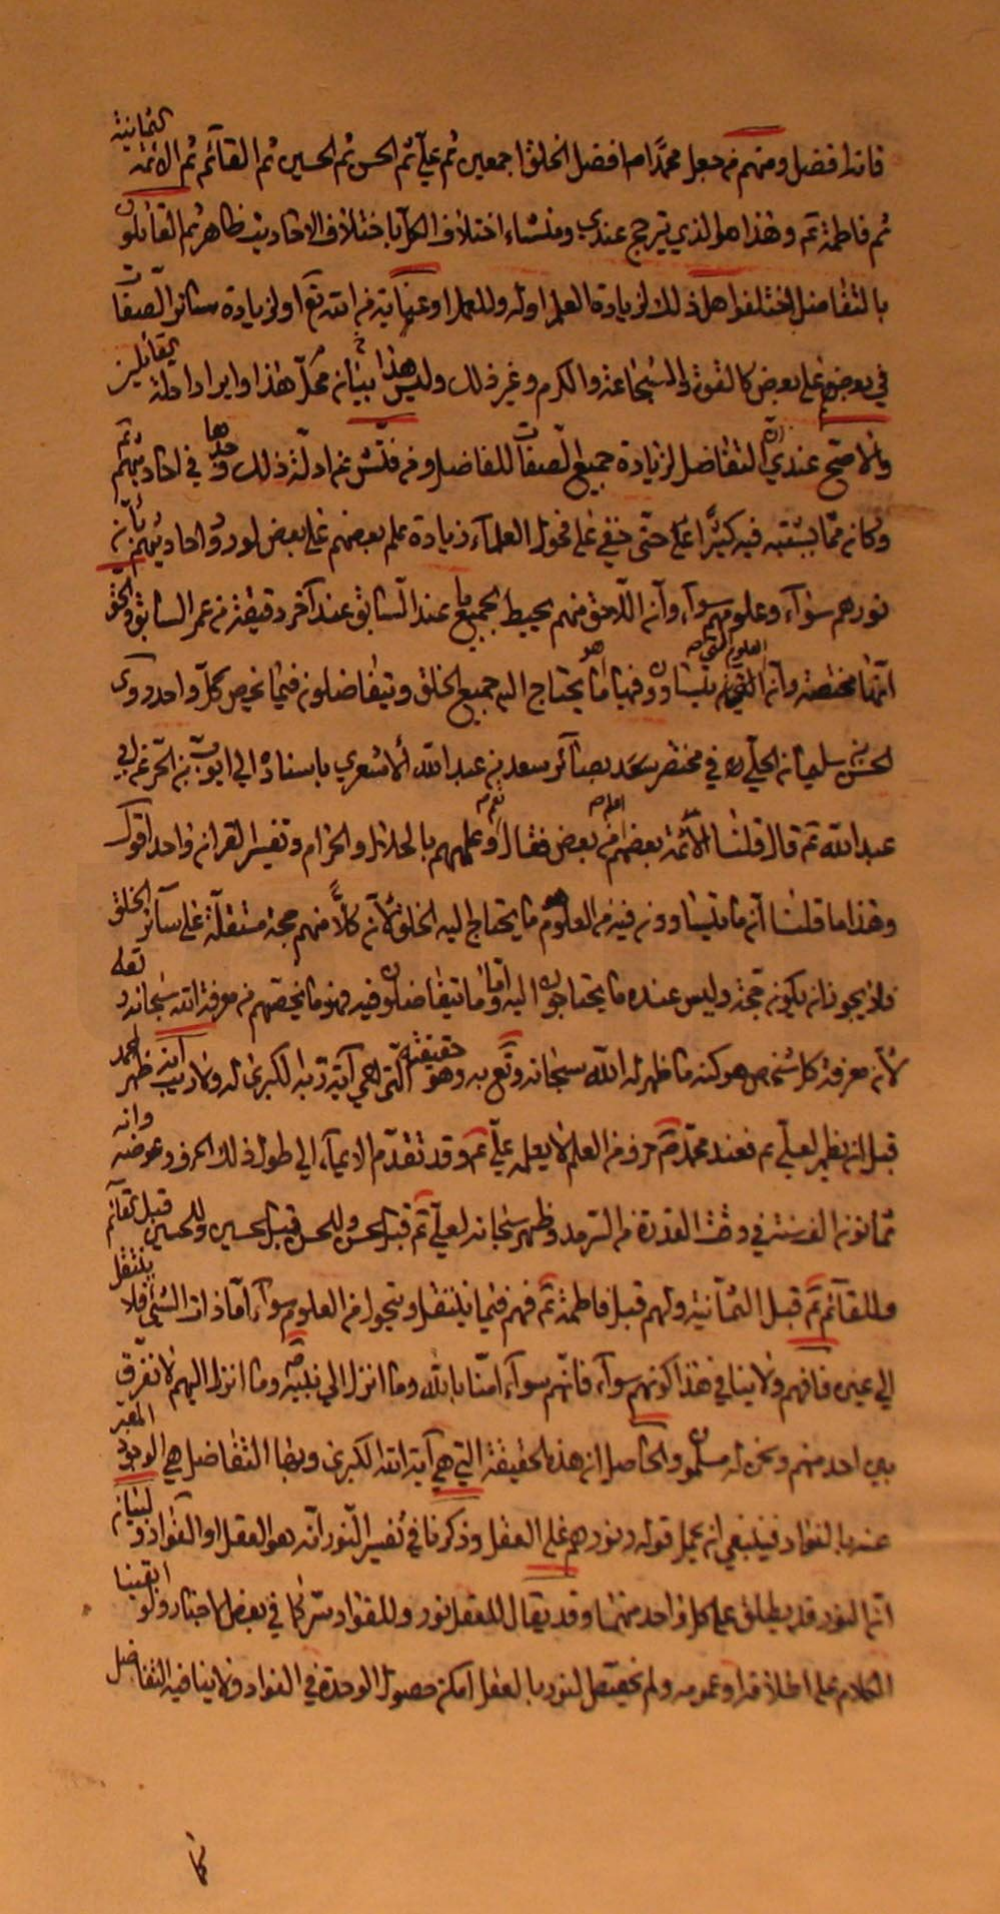 فانه افضل ومنهم من جعل محمدًا ص افضل الخلق اجمعين ثم علي ثم الحسن ثم الحسين ثم القآئم ثم الائمة الثمانية
ثم فاطمة ع وهذا هو الذي يترجح عندي ومنشاء اختلاف الكل باختلاف الاحاديث ظاهر ثم القائلون
بالتفاضل اختلفوا هل ذلك لزيادة العلم او له وللعمل او عناية من الله تع او لزيادة سائر الصفات
في بعض على بعض كالقوة والشجاعة والكرم وغير ذلك وليس هذا بيان محل هذا وايراد ادلة القائلين
والاصح عندي ان التفاضل لزيادة جميع الصفات للفاضل ومن فتش عن ادلة ذلك وجدها في احاديثهم
وكان مما يشتبه فيه كثيرًا حتى خفي على فحول العلمآء زيادة علم بعضهم على بعض لورود احاديثهم بان
نورهم سوآء وعلومهم سوآء وان اللاحق منهم يحيط بجميع ما عند السابق عند آخر دقيقة من عمر السابق والحق
انها مختصة وان العلوم التي يتساوون فيها هو ما يحتاج اليه جميع الخلق ويتفاضلون فيما يخص كل واحد روى
الحسن بن سليمان الحلي ره في مختصر بصآئر سعد بن عبد الله الاشعري باسناده الى ايوب بن الحر عن ابي
عبد الله ع قال قلنا الائمة بعضهم اعلم من بعض فقال نعم وعلمهم بالحلال والحرام وتفسير القران واحد اقول
وهذا ما قلنا ان ما يتساوون فيه من العلوم ما يحتاج اليه الخلق لان كلاً منهم حجة مستقلة على سآئر الخلق
فلا يجوز ان يكون حجة وليس عنده ما يحتاجون اليه واما ما يتفاضلون فيه فهو ما يخصهم من معرفة الله سبحانه وتعالى
لان معرفة كل شخص هو كنه ما ظهر له الله سبحانه وتع به وهو حقيقته التي هي آية ربه الكبرى له ولا ريب انه ظهر لمحمد
قبل ان يظهر لعلي ع فعند محمد ص حرف من العلم لا يعلمه علي ع وقد تقدم الايمآء الى طول ذلك الحرف وعرضه وانه
ثمانون الف سنة في وقت القدرة من السرمد وظهر سبحانه لعلي ع قبل الحسن وللحسن قبل الحسين وللحسين قبل القآئم
وللقآئم ع قبل الثمانية ولهم قبل فاطمة ع فهم فيما ينتقل ويتحول من العلوم سوآء اما ذات الشيء فلا ينتقل
الى غيره فافهم ولا ينافي هذا كونهم سوآء فانهم سوآء امنا بالله وما انزل الى نبيه ص وما انزل اليهم لا نفرق
بين احد منهم ونحن له مسلمون والحاصل ان هذه الحقيقة التي هي آية الله الكبرى وبها التفاضل هي الوجود المعبر
عنه بالفؤاد فينبغي ان يحمل قوله ونورهم على العقل وذكرنا في تفسير النور انه هو العقل او الفؤاد لبيان
ان النور قد يطلق على كل واحد منهما وقد يقال للعقل نور وللفؤاد سر كما في بعض الاخبار ولو ابقينا
الكلام على اطلاقه وعمومه ولم نخصص النور بالعقل امكن حصول الوحدة في الفؤاد ولا ينافيه التفاضل
كما